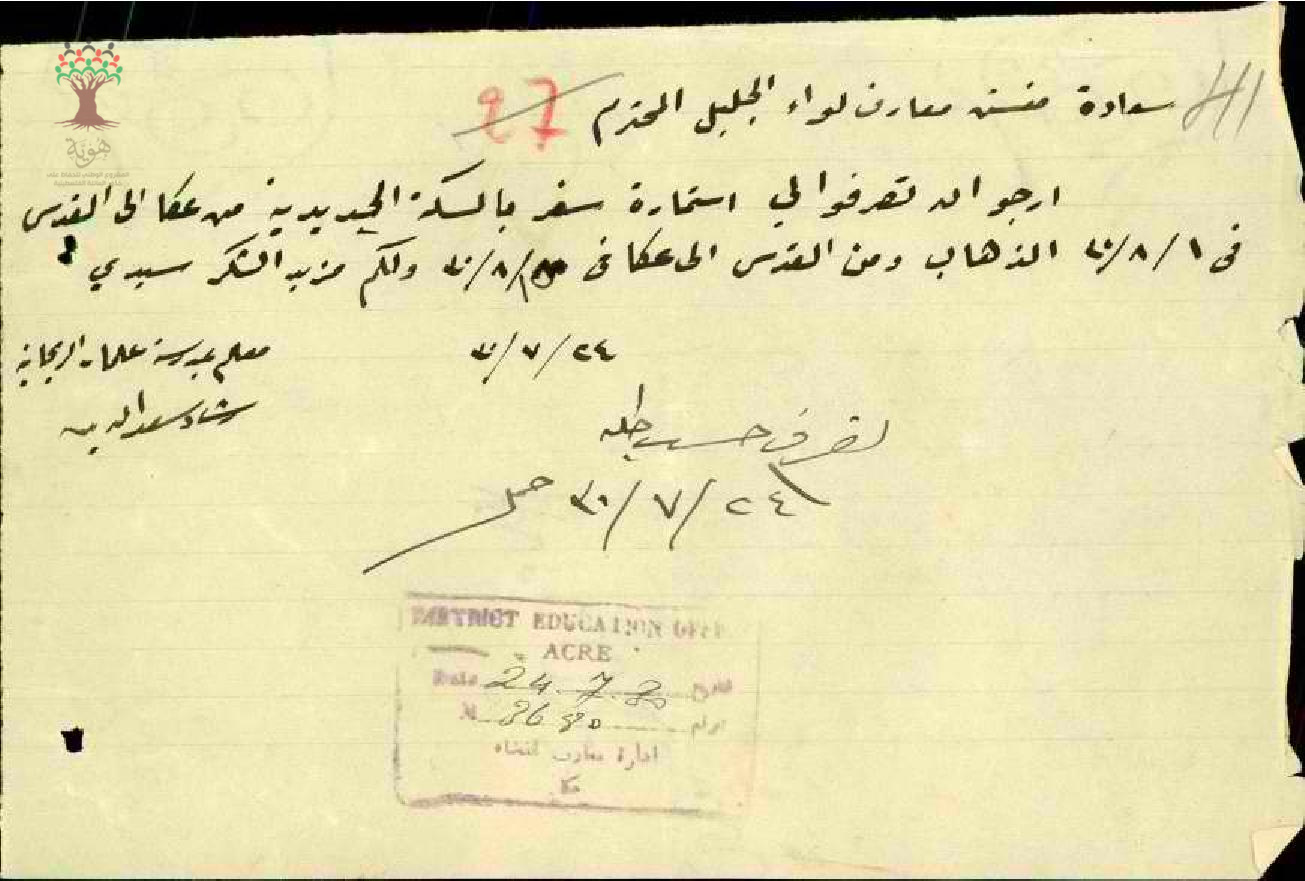 سعادة مفتش معارف لواء الجليل المحترم
27
ارجو ان تصرفوا لي استمارة سفر بالسكة الحديدية من عكا الى القدس
في ١/٨/٣٠ الذهاب ومن القدس الى عكا في /٨/٣٠ ولكم مزيد الشكر سيدي
٢٤/٧/٣٠
معلم بمدرسة علمان الريحانية
رشاد سعد الدين
تصرف حسب طلبه
٢٤/٧/٣٠
DISTRICT EDUCATION OFFI
ACRE
Date 24.7.30 التاريخ
N 3680 نومرو
ادارة معارف قضاء
عكا
هوية